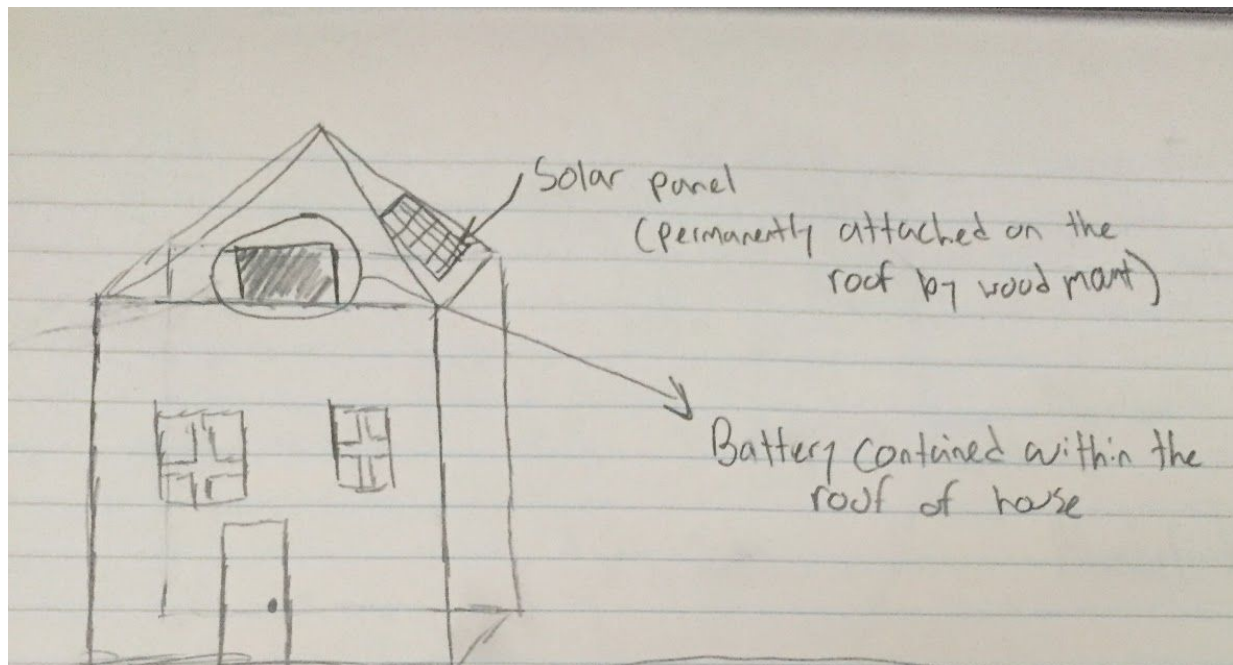 Solar panel
(permanently attached on the
roof by wood mant)
Battery contained within the
roof of house